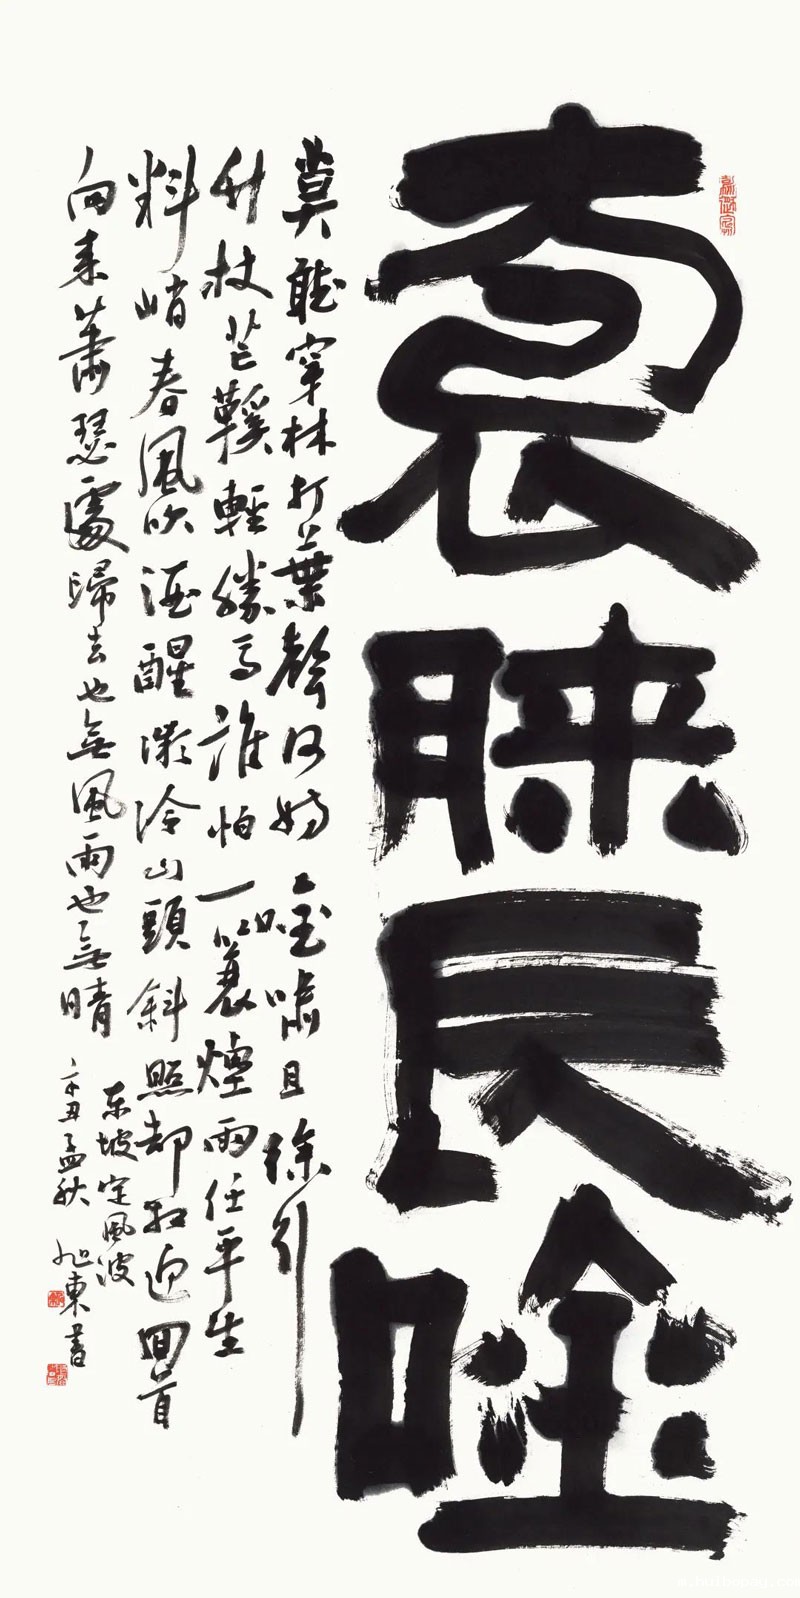 長唫
莫聽穿林打葉聲何妨唫嘯且徐行
竹杖芒鞵輕勝馬誰怕一蓑煙雨任平生
料峭春風吹酒醒微冷山頭斜照却相迎回首
向来蕭瑟處歸去也無風雨也無晴
东坡定風波
辛丑孟秋 旭東書